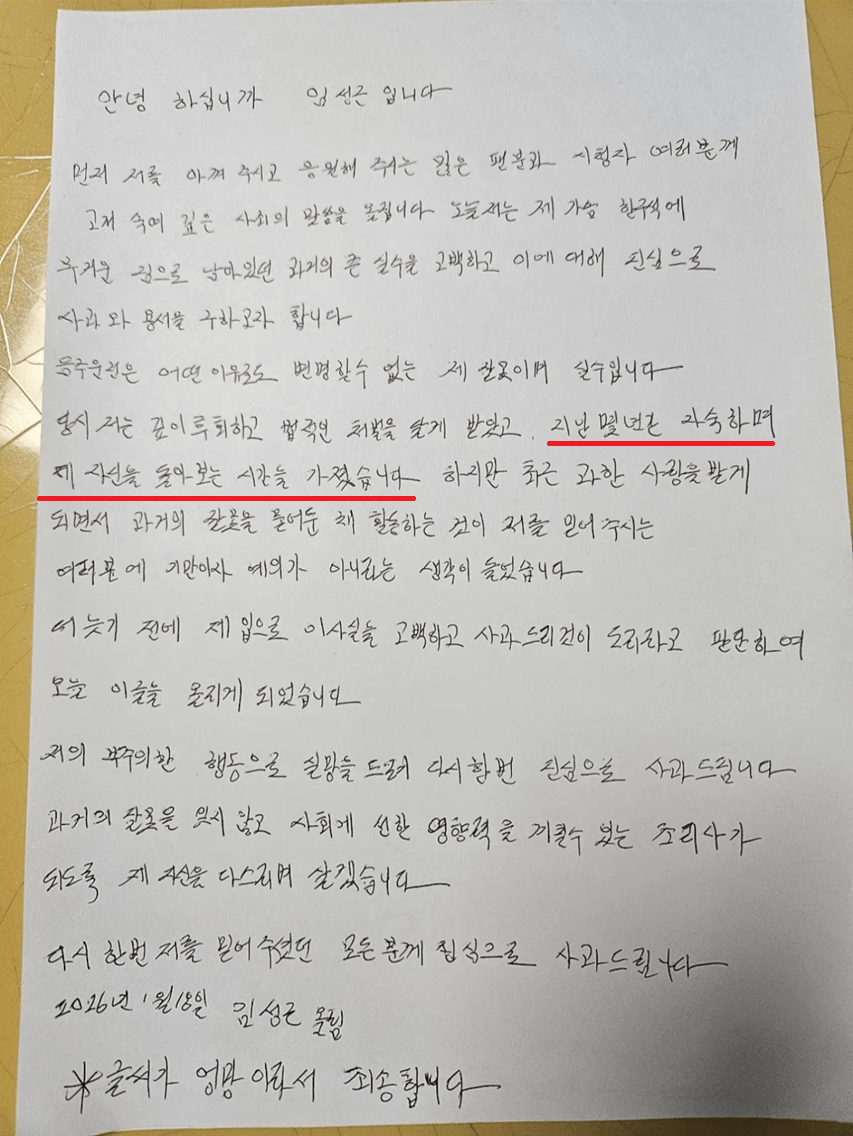 안녕 하십니까 임성근 입니다
먼저 저를 아껴 주시고 응원해 주시는 많은 팬분과 시청자 여러분께
고개 숙여 깊은 사죄의 말씀을 올립니다 오늘 저는 제 가슴 한구석에
무거운 짐으로 남아있던 과거의 큰 실수을 고백하고 이에 대해 진심으로
사과 와 용서를 구하고자 합니다
음주운전은 어떤 이유로도 변명할수 없는 제 잘못이며 실수입니다
당시 저는 깊이 후회하고 법적인 처벌을 달게 받았고, 지난 몇년간 자숙하며
제 자신을 돌아보는 시간을 가졌습니다 하지만 최근 과한 사랑을 받게
되면서 과거의 잘못을 묻어둔 채 활동하는 것이 저를 믿어 주시는
여러분에 기만이자 예의가 아니라는 생각이 들었습니다
더 늦기 전에 제 입으로 이사실을 고백하고 사과드리것이 도리라고 판단하여
오늘 이글을 올리게 되었습니다
저의 부주의한 행동으로 실망을 드려 다시한번 진심으로 사과드립니다
과거의 잘못을 잊지 않고 사회에 선한 영향력을 끼칠수 있는 조리사가
되도록 제 자신을 다스리며 살겠습니다
다시 한번 저를 믿어 주셨던 모든 분께 진심으로 사과드립니다
2026년 1월 18일 임성근 올림
※글씨가 엉망 이라서 죄송합니다